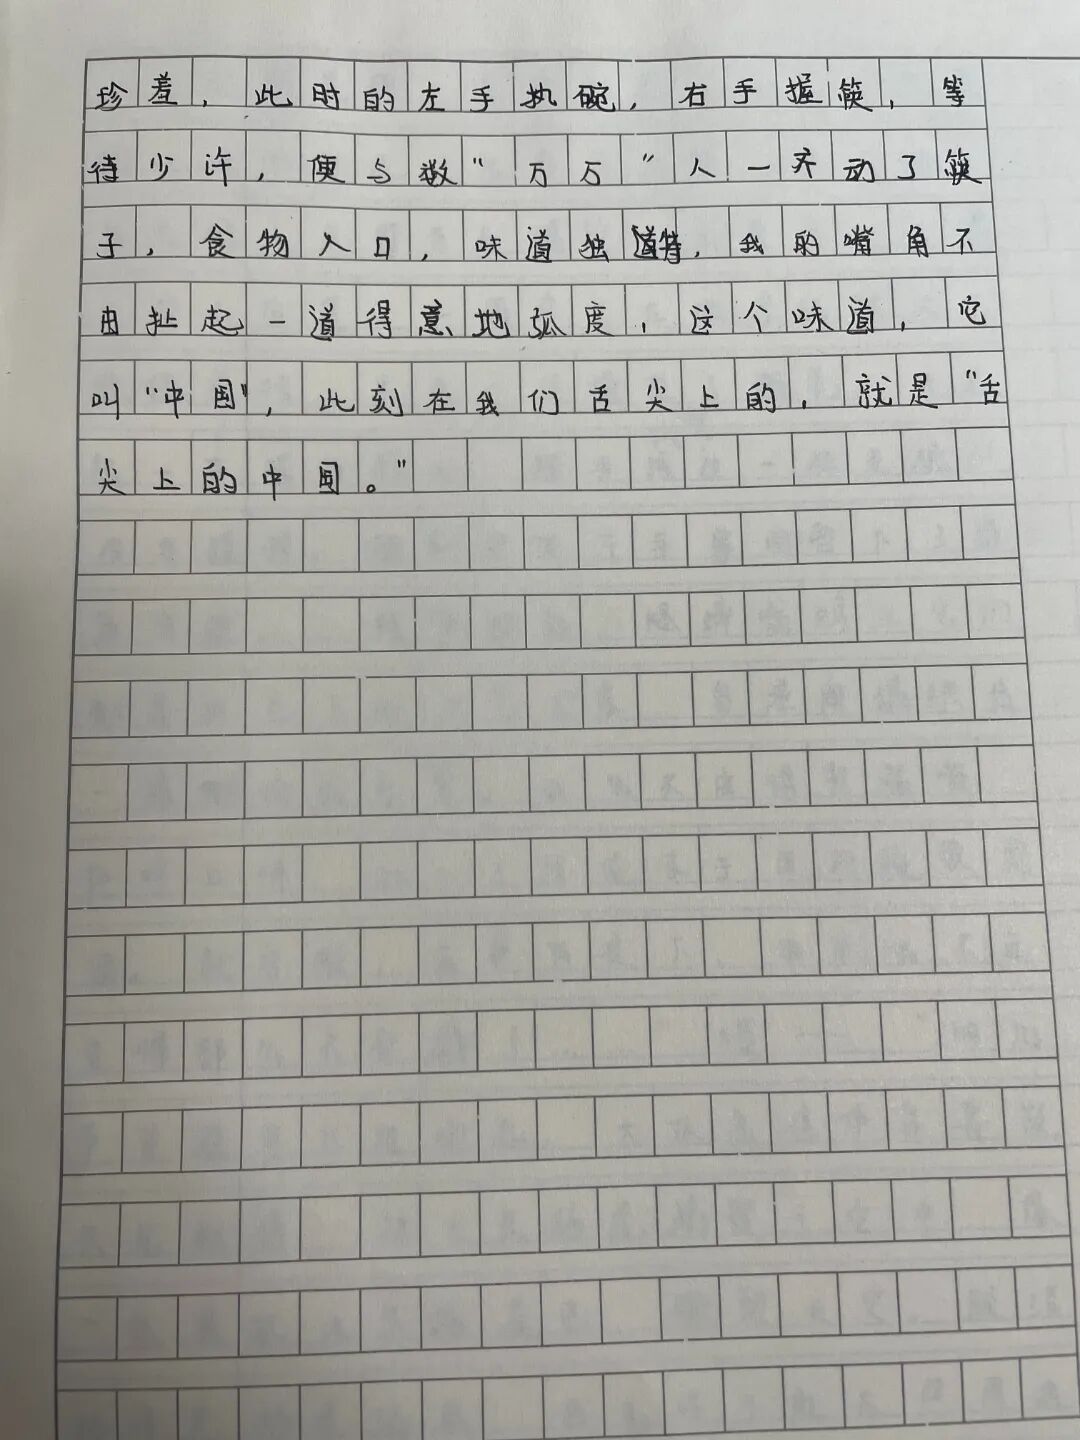 珍羞，此时的左手执碗，右手握筷，等
待少许，便与数“万万”人一齐动了筷
子，食物入口，味道独特，我的嘴角不
由扯起一道得意地弧度，这个味道，它
叫“中国”，此刻在我们舌尖上的，就是“舌
尖上的中国。”